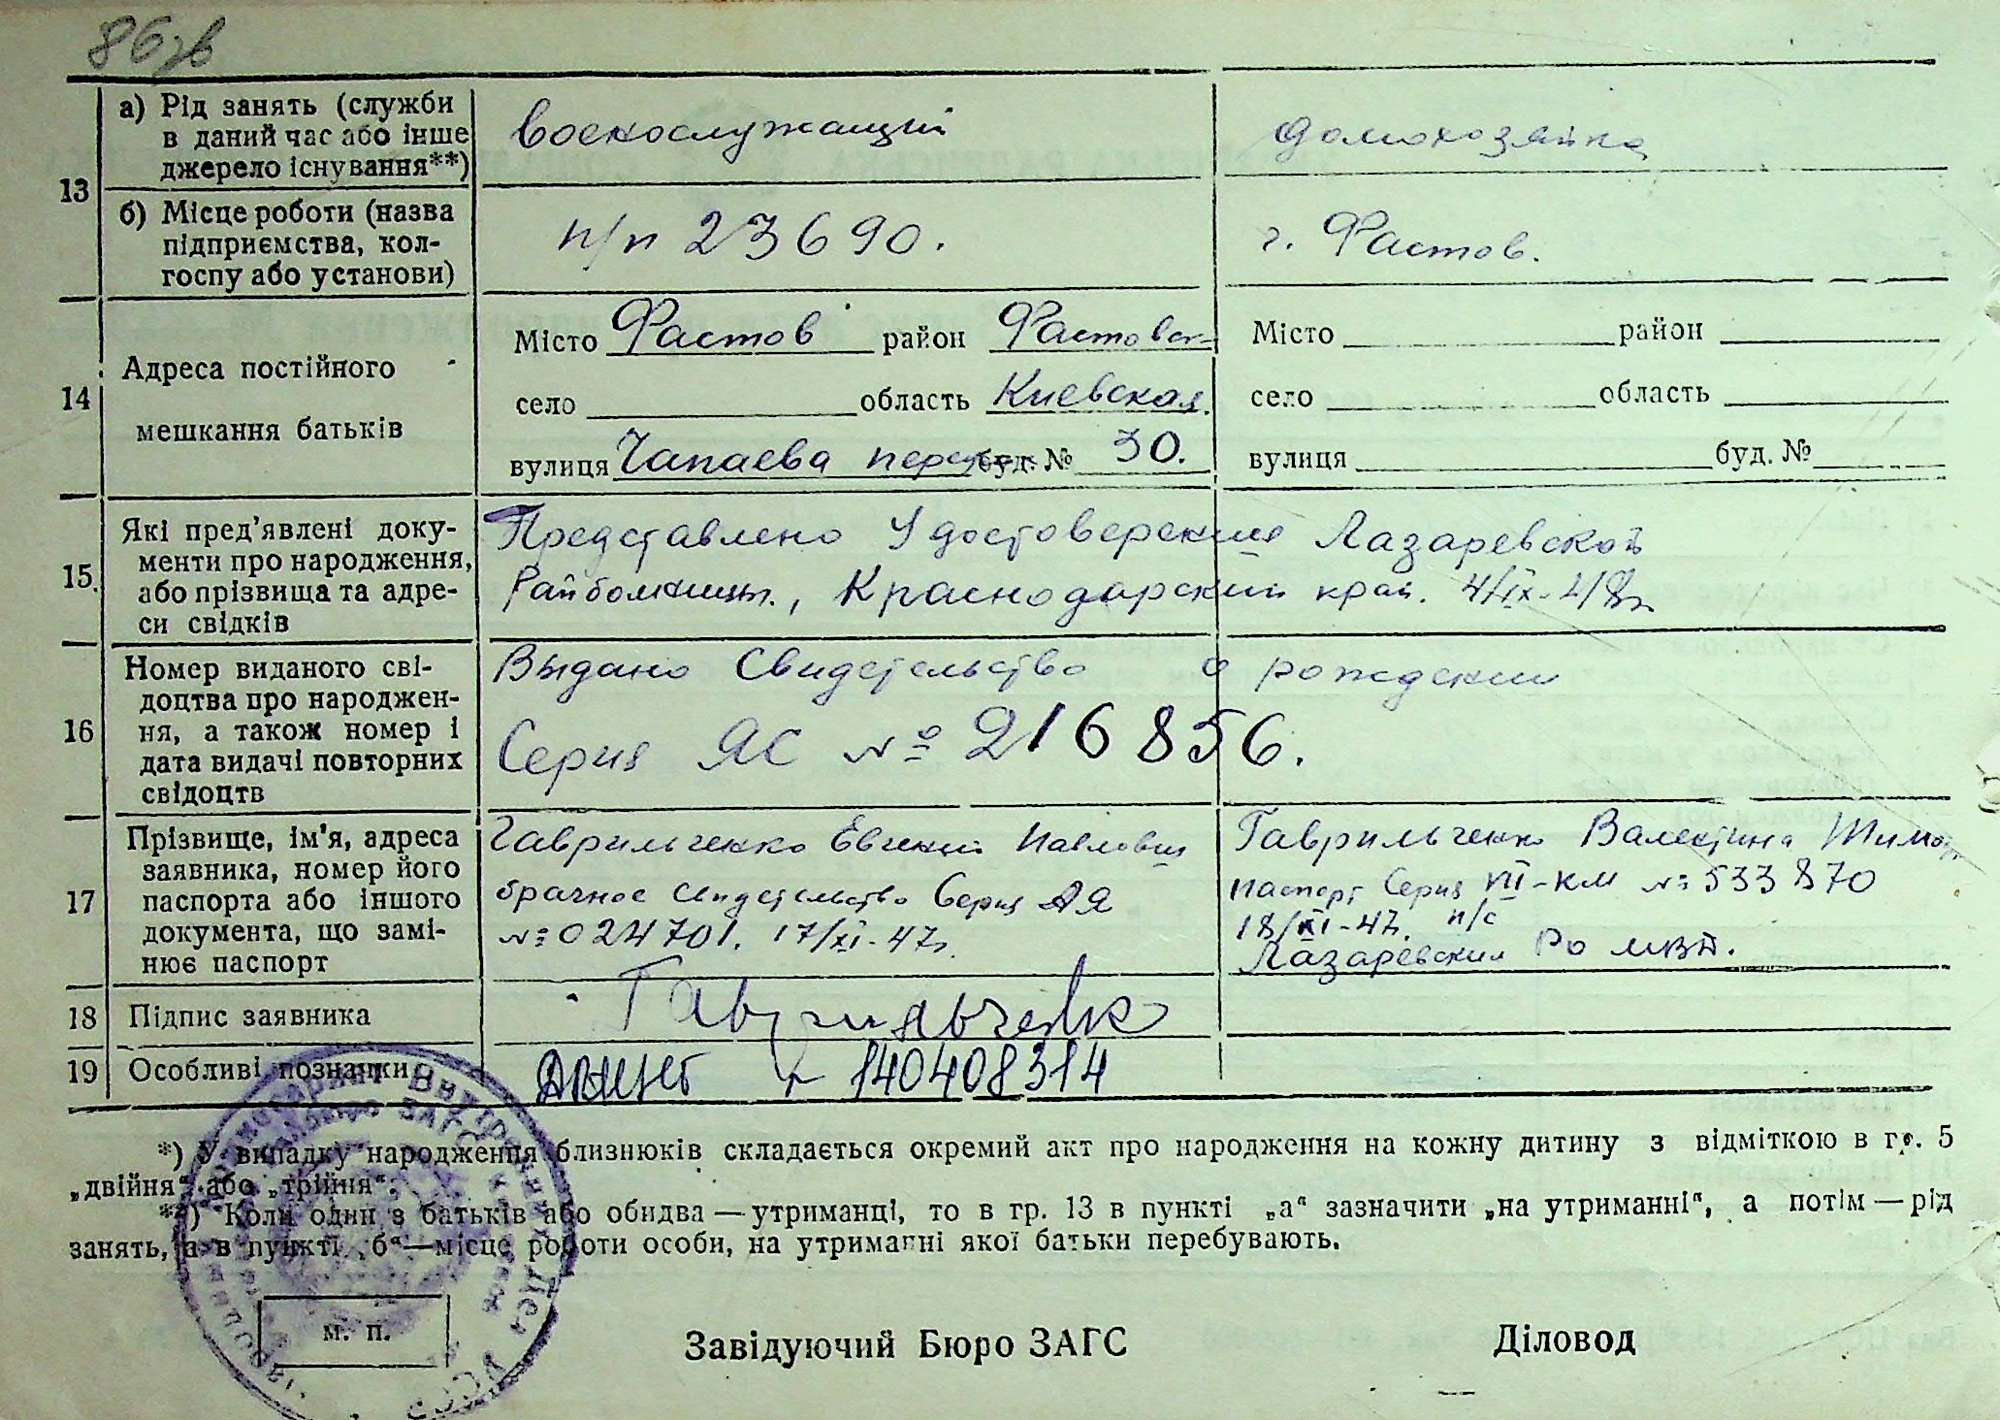 86зв
13
а) Рід занять (служби
в даний час або інше
джерело існування**)
военослужащий
домохозяйка
б) Місце роботи (назва
підприємства, кол-
госпу або установи)
п/п 23690.
г. Фастов.
14
Адреса постійного
мешкання батьків
Місто Фастов район Фастовск-
село область Киевская.
вулиця Чапаева пере буд. № 30.
Місто район
село область
вулиця буд. №
15
Які пред'явлені доку-
менти про народження,
або прізвища та адре-
си свідків
Представлено Удостоверение Лазаревской
Райбольницы., Краснодарский край. 4/IX-48г
16
Номер виданого сві-
доцтва про народжен-
ня, а також номер і
дата видачі повторних
свідоцтв
Выдано Свидетельство о рождении
Серия ЯС № 216856.
17
Прізвище, ім'я, адреса
заявника, номер його
паспорта або іншого
документа, що замі-
нює паспорт
Гаврильченко Евгений Павлович
брачное Свидетельство Серия АЯ
№ 024701. 17/XI-47г.
Гаврильченко Валентина Тимоф
паспорт Серия VII-КМ № 533870
18/XI-47. п/с
Лазаревский РО МВД.
18
Підпис заявника
Гаврильченко
19
Особливі позначки
140408314
*) У випадку народження близнюків складається окремий акт про народження на кожну дитину з відміткою в гр. 5
„двійня“ або „трійня“.
**) Коли один з батьків або обидва — утриманці, то в гр. 13 в пункті „а“ зазначити „на утриманні“, а потім — рід
занять, а в пункті „б“—місце роботи особи, на утриманні якої батьки перебувають.
м. п.
Завідуючий Бюро ЗАГС
Діловод